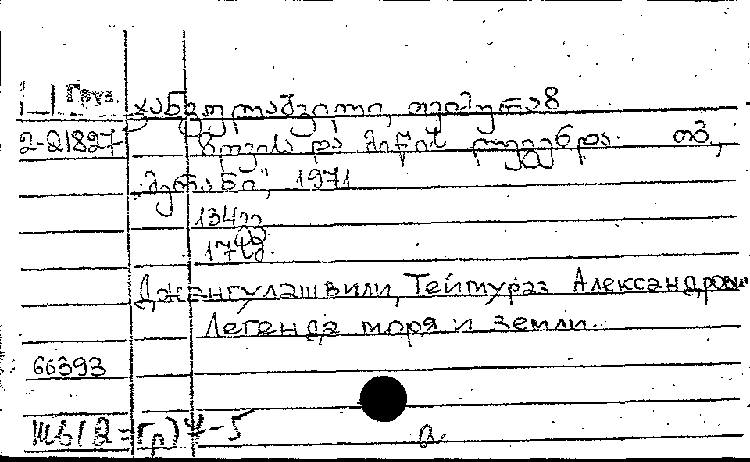 Груз.
ჯანგულაშვილი, თეიმურაზ
2-21827 ზღვისა და მიწის ლეგენდა. თბ.,
„მერანი“, 1971
134 გვ.
Джангулашвили, Теймураз Александрович
Легенда моря и земли.
66393